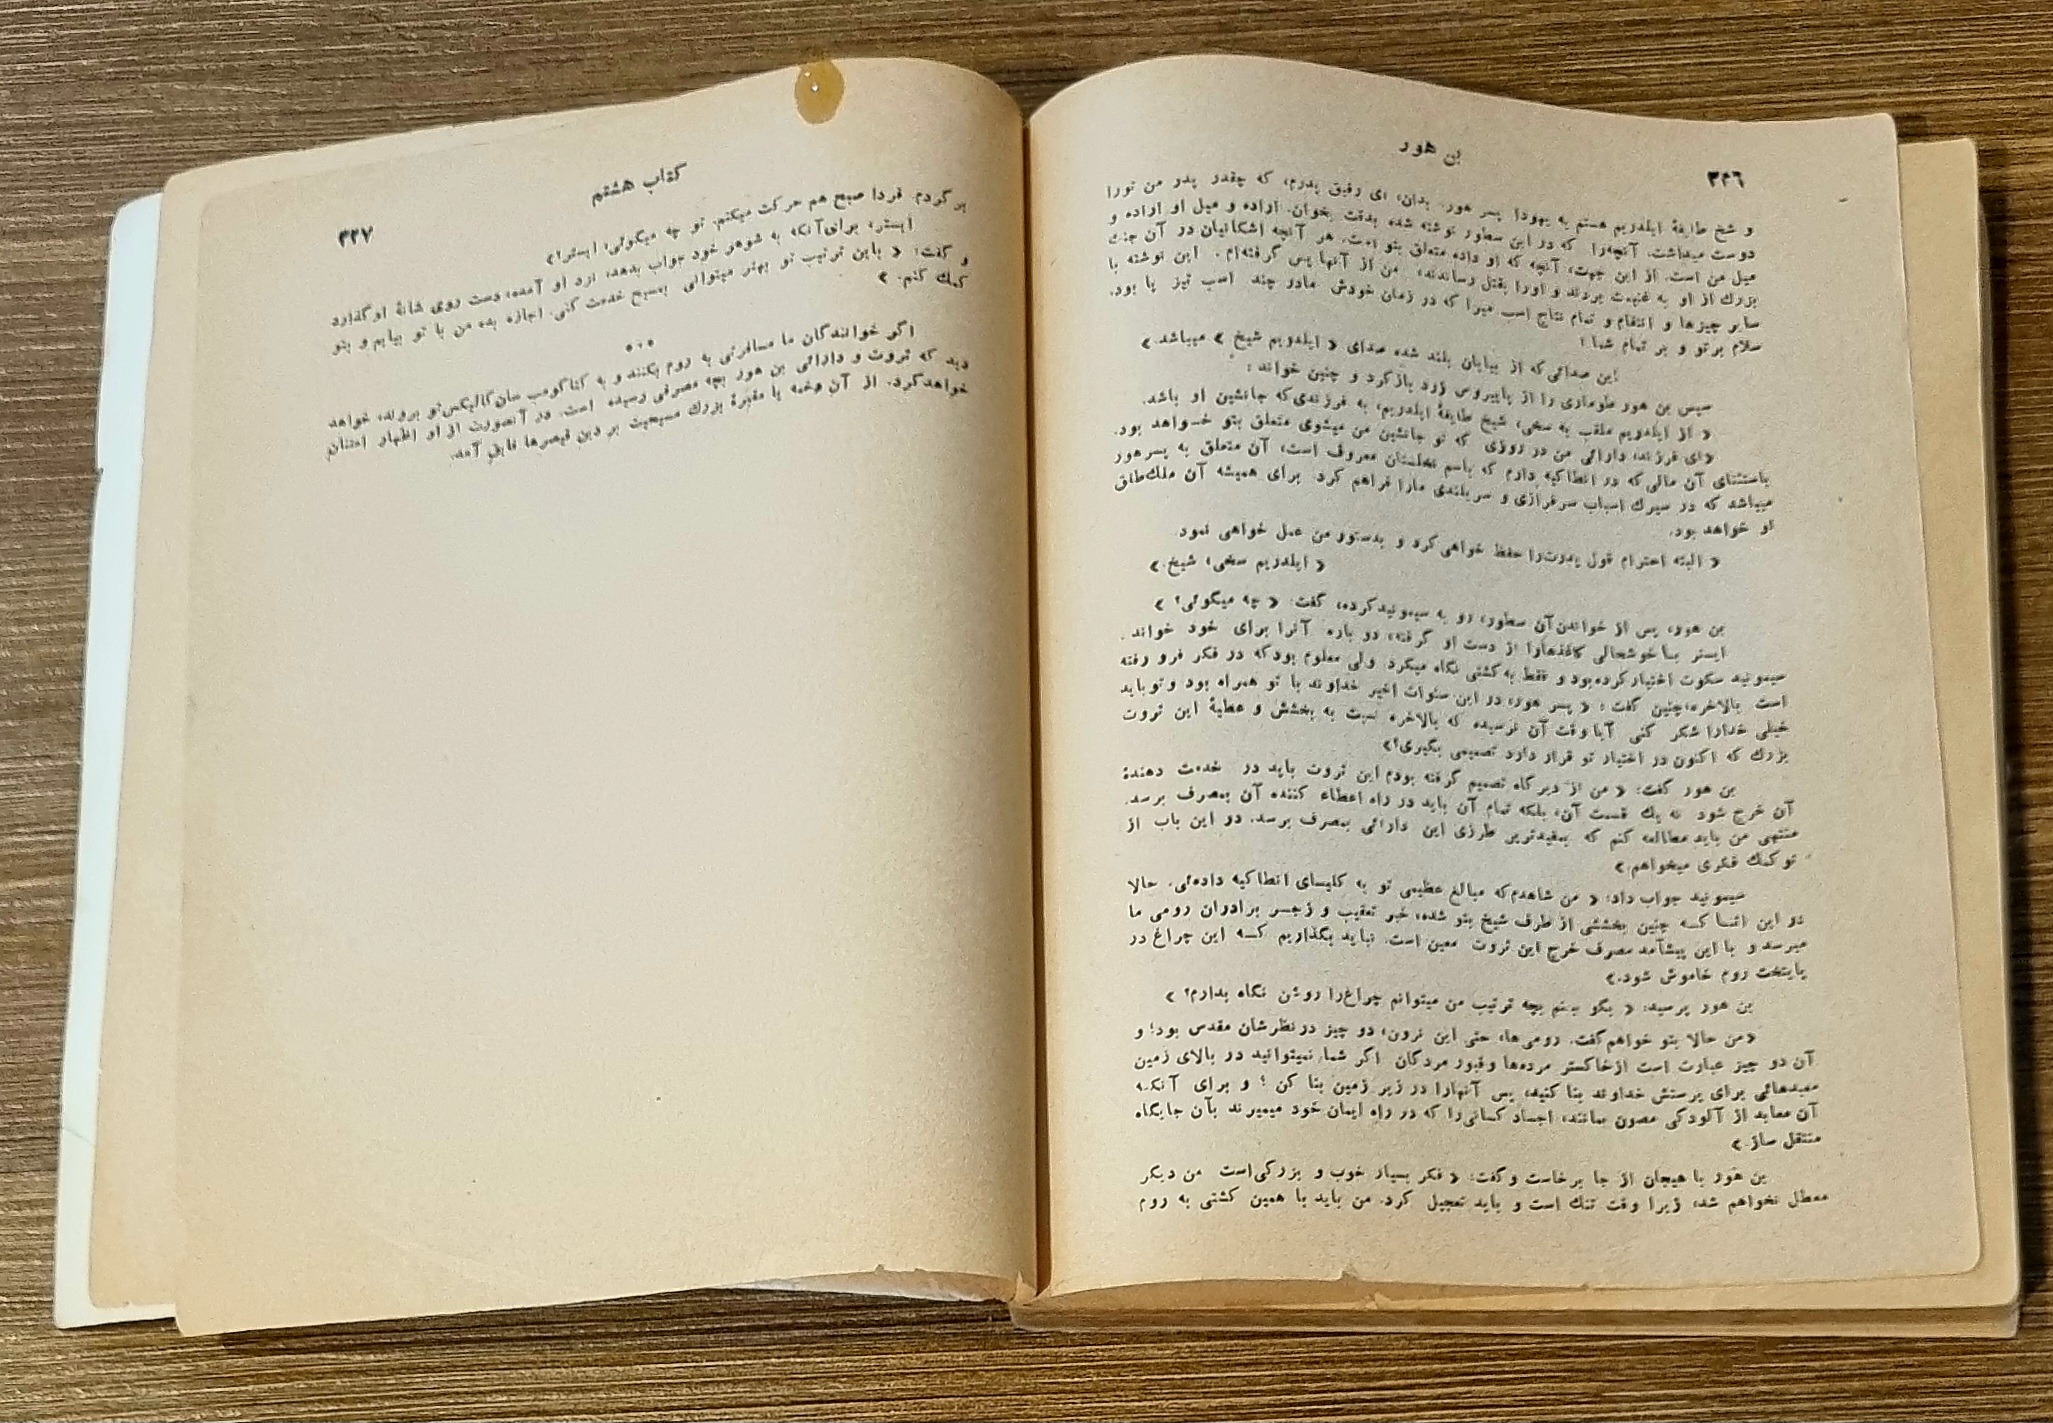 ۳۴۶
بن هور
و شیخ طایفهٔ ایلدریم هستم به یهودا پسر هور. بدان، ای رفیق پدرم، که چقدر پدر من تورا
دوست میداشت. آنچه‌را که در این سطور نوشته شده بدقت بخوان. اراده و میل او اراده و
میل من است. از این جهت، آنچه که او داده متعلق بتو است. هر آنچه اشکانیان در آن جنگ
بزرك از او به غنیمت بردند و اورا بقتل رساندند، من از آنها پس گرفته‌ام. این نوشته با
سایر چیزها و انتقام و تمام نتاج اسب میرا که در زمان خودش مادر چند اسب تیز پا بود.
سلام بر تو و بر تمام شما!
این صدائی‌که از بیابان بلند شده صدای « ایلدریم شیخ » میباشد.»
سپس بن هور طوماری را از پاپیروس زرد باز کرد و چنین خواند:
« از ایلدریم ملقب به سخی، شیخ طایفهٔ ایلدریم، به فرزندی‌که جانشین او باشد.
«ای فرزند، دارائی من در روزی که تو جانشین من میشوی متعلق بتو خواهد بود.
باستثنای آن مالی‌که در انطاکیه دارم که باسم نخلستان معروف است، آن متعلق به پسر هور
میباشد که در سیرك اسباب سرفرازی و سربلندی مارا فراهم کرد. برای همیشه آن ملك طلق
او خواهد بود.
« البته احترام قول پدرت‌را حفظ خواهی‌کرد و بدستور من عمل خواهی نمود.
« ایلدریم سخی، شیخ.»
بن هور، پس از خواندن آن سطور، رو به سیمونید کرده، گفت: « چه میگوئی؟ »
ایستر با خوشحالی کاغذهارا از دست او گرفته، دو باره آنرا برای خود خواند.
سیمونید سکوت اختیار کرده بود و فقط به کشتی نگاه میکرد ولی معلوم بود که در فکر فرو رفته
است بالاخره، چنین گفت: « پسر هور، در این سنوات اخیر خداوند با تو همراه بود و تو باید
خیلی خدارا شکر کنی آیا وقت آن نرسیده که بالاخره نسبت به بخشش و عطیهٔ این ثروت
بزرك که اکنون در اختیار تو قرار دارد تصمیمی بگیری؟»
بن هور گفت: « من از دیر گاه تصمیم گرفته بودم این ثروت باید در خدمت دهندهٔ
آن خرج شود نه یك قسمت آن، بلکه تمام آن باید در راه اعطاء کننده آن بمصرف برسد.
منتهی من باید مطالعه کنم که بمفیدترین طرزی این دارائی بمصرف برسد. در این باب از
تو کمك فکری میخواهم.»
سیمونید جواب داد: « من شاهدم که مبالغ عظیمی تو به کلیسای انطاکیه داده‌ئی. حالا
در این اثنا کسه چنین بخششی از طرف شیخ بتو شده، خبر تعقیب و زجسر برادران رومی ما
میرسد و با این پیشآمد مصرف خرج این ثروت معین است. نباید بگذاریم کسه این چراغ در
پایتخت روم خاموش شود.»
بن هور پرسید: « بگو ببینم بچه ترتیب من میتوانم چراغ‌را روشن نگاه بدارم؟ »
«من حالا بتو خواهم گفت. رومی‌ها، حتی این نرون، دو چیز در نظرشان مقدس بود؛ و
آن دو چیز عبارت است از خاکستر مرده‌ها و قبور مردگان اگر شما نمیتوانید در بالای زمین
معبدهائی برای پرستش خداوند بنا کنید، پس آنهارا در زیر زمین بنا کن ؛ و برای آنکه
آن معابد از آلودگی مصون بمانند، اجساد کسانی‌را که در راه ایمان خود میمیرند بآن جایگاه
منتقل ساز.»
بن هور با هیجان از جا برخاست و گفت: « فکر بسیار خوب و بزرگی‌است من دیگر
معطل نخواهم شد، زیرا وقت تنك است و باید تعجیل کرد. من باید با همین کشتی به روم
کتاب هشتم
۳۴۷
برگردم. فردا صبح هم حرکت میکنم. تو چه میگوئی، ایستر؟»
ایستر، برای‌آنکه به شوهر خود جواب بدهد، نزد او آمده، دست روی شانهٔ او گذارد
و گفت: « باین ترتیب تو بهتر میتوانی بمسیح خدمت کنی. اجازه بده من با تو بیایم و بتو
کمك کنم. »
***
اگر خوانندگان ما مسافرتی به روم بکنند و به کتاگومب سان کالیکس‌تو بروند، خواهند
دید که ثروت و دارائی بن هور بچه مصرفی رسیده است. در آنصورت از او اظهار امتنان
خواهند کرد. از آن دخمه یا مقبرهٔ بزرك مسیحیت بر دین قیصرها فایق آمد.